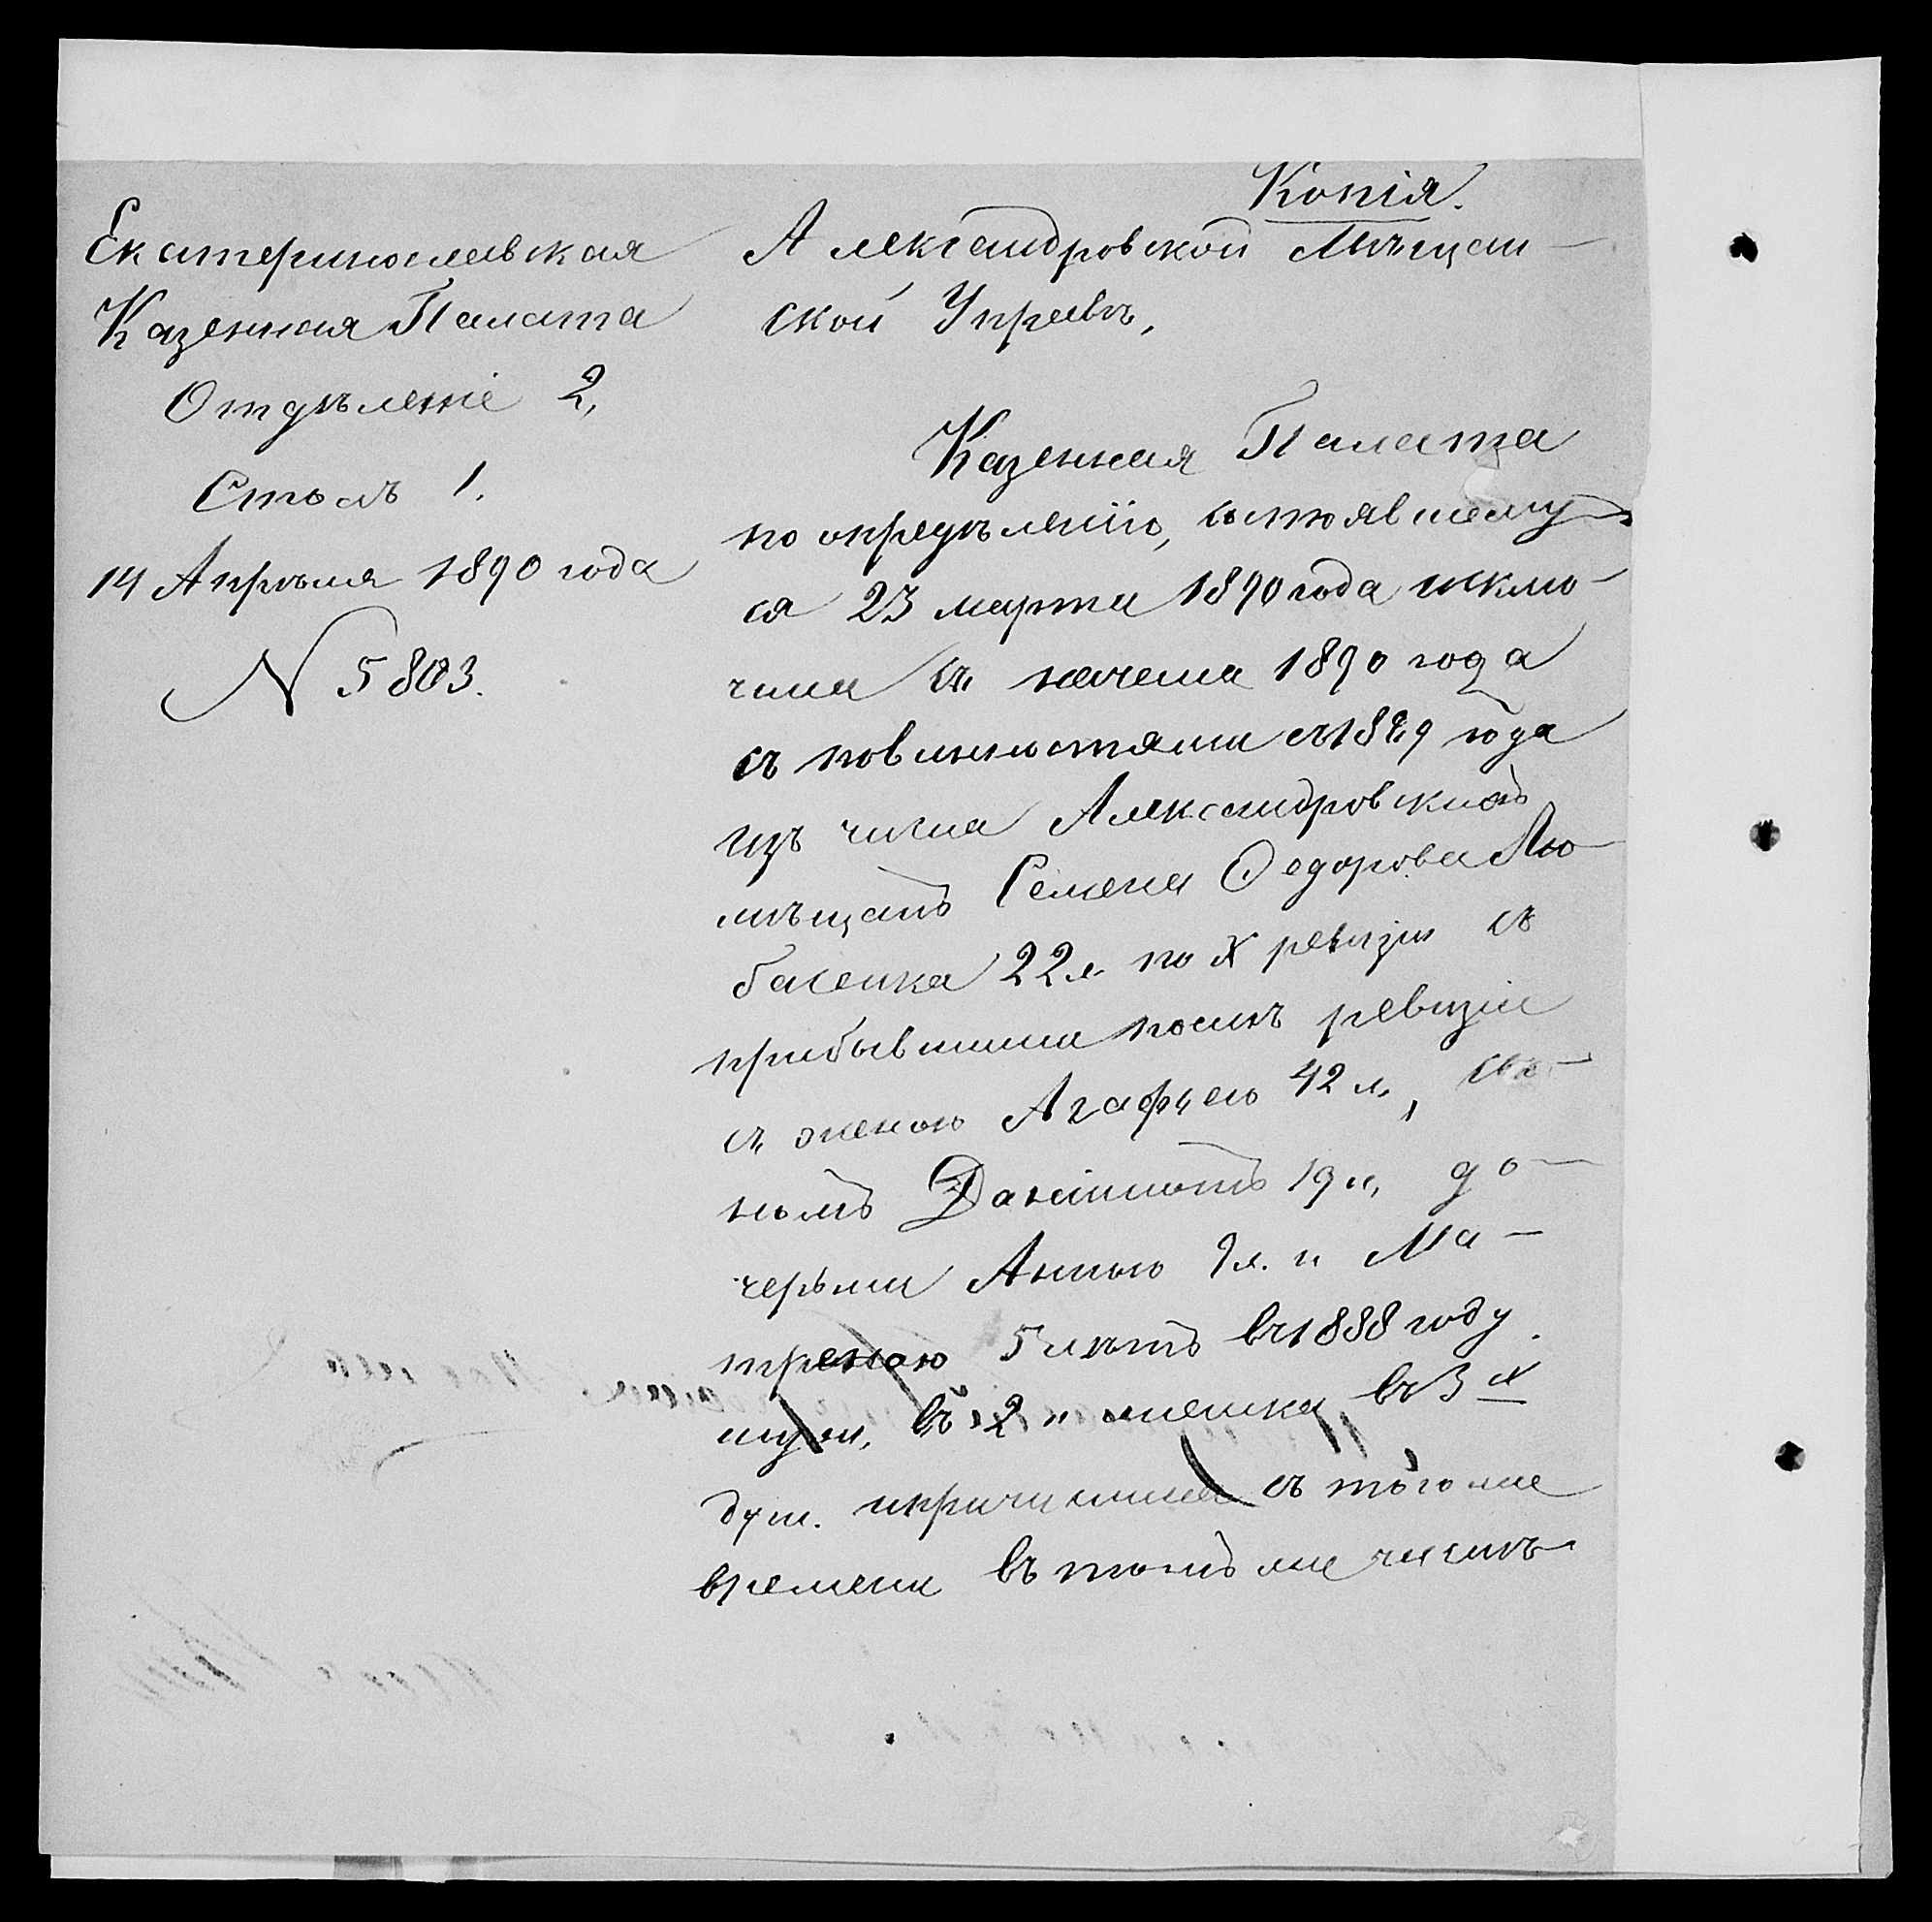 Копія.
Екатеринославская
Казенная Палата
Отдѣленіе 2,
Столъ 1.
14 Апрѣля 1890 года
N 5803.
Александровской Мѣщан-
ской Управѣ,
Казенная Палата
по опредѣленію, состоявшему-
ся 23 марта 1890 года исклю-
чила съ начала 1890 года
съ повинностями съ 1889 года
изъ числа Александровскихъ
мѣщанъ Семена Федорова Лю-
басенка 22 л. по X ревизіи съ
прибывшими послѣ ревизіи
съ женою Агафьею 42 л.,
номъ Даніиломъ 19 л, до-
черьми Анною 9 л. и Ма-
треною 5 лѣтъ въ 1888 году.
муж. въ 2 и женска въ 3х
душ. и причислила съ того же
времени въ томъ же числѣ